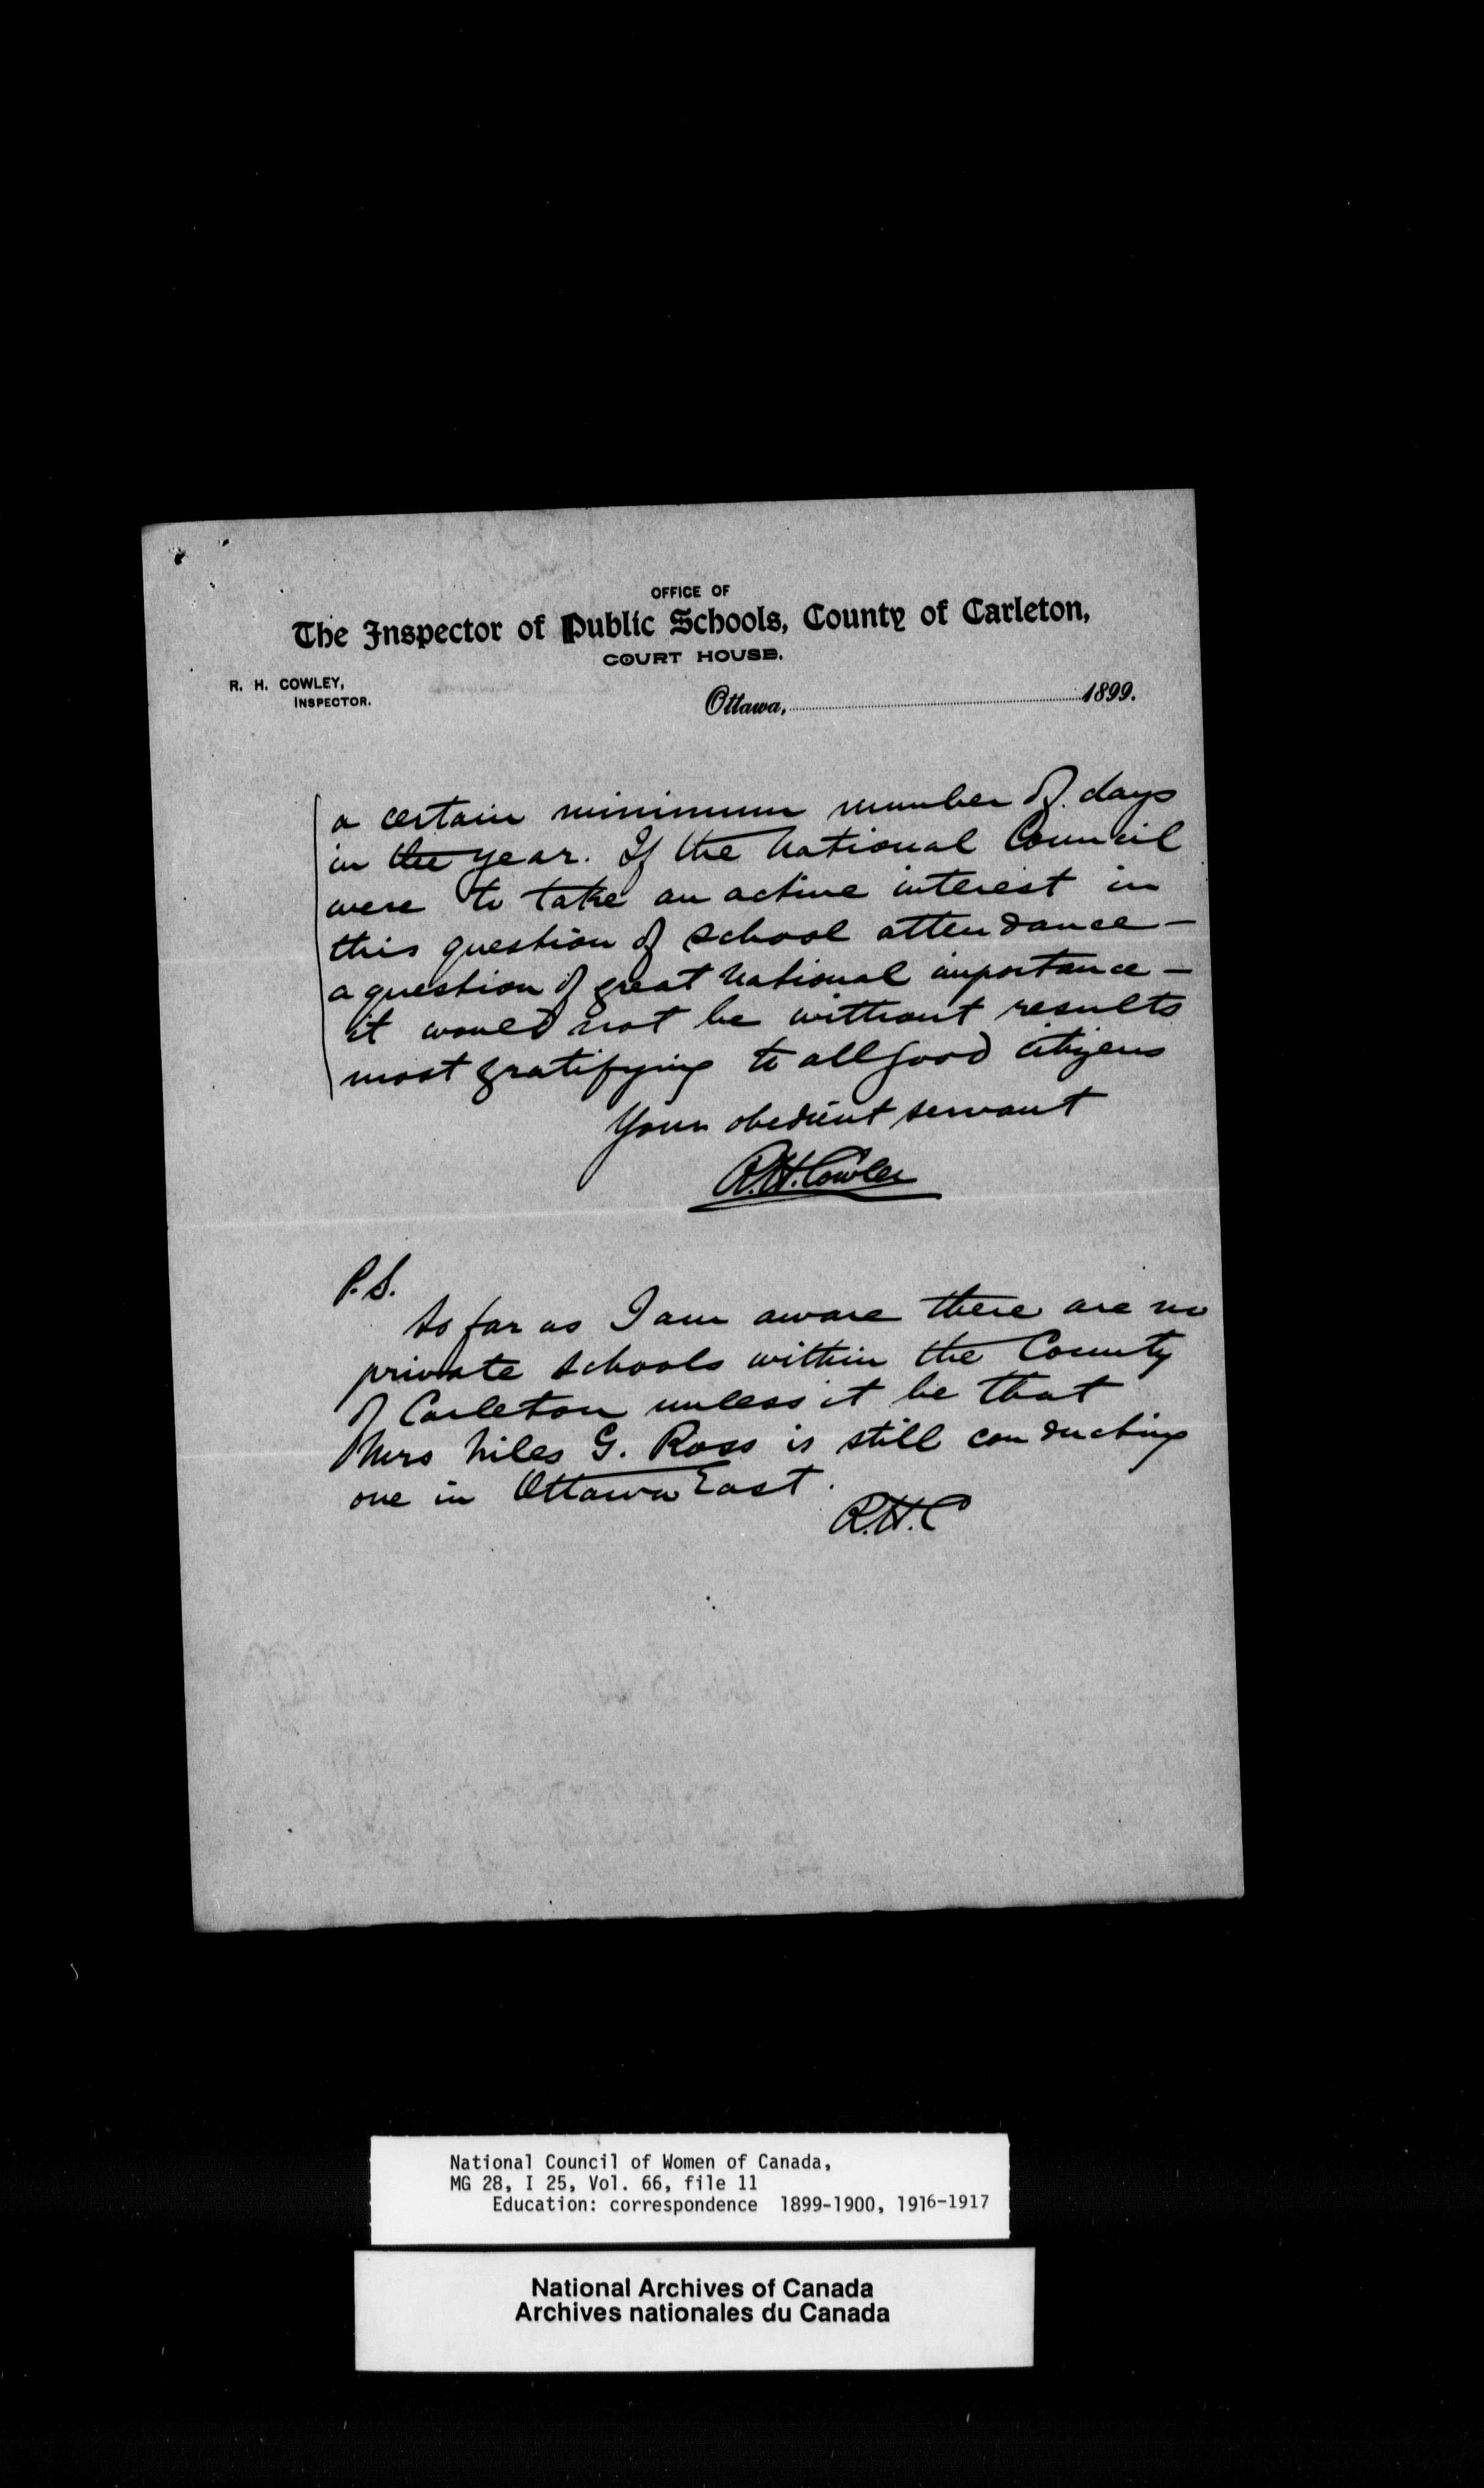 OFFICE OF
The Inspector of Public Schools, County of Carleton,
COURT HOUSE.
R. H. COWLEY,
INSPECTOR.
Ottawa, 1899.
a certain minimum number of days
in the year. If the National Council
were to take an active interest in
this question of school attendance —
a question of great national importance —
it would not be without results
most gratifying to all good citizens
Your obedient servant
R.H. Cowley
P.S.
So far as I am aware there are no
private schools within the County
of Carleton unless it be that
Mrs Niles G. Ross is still conducting
one in Ottawa East.
R.H.C
National Council of Women of Canada,
MG 28, I 25, Vol. 66, file 11
Education: correspondence 1899-1900, 1916-1917
National Archives of Canada
Archives nationales du Canada